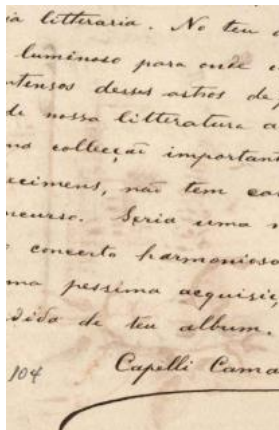 ia litteraria. No teu
luminoso para onde c
ntensos desses astros de
de nossa litteratura a
ma collecção important
ecimens, não tem
ncurso. Seria uma
concerto harmonioso
ma pessima acquisiç
dido de teu album.
104 Capelli Cama